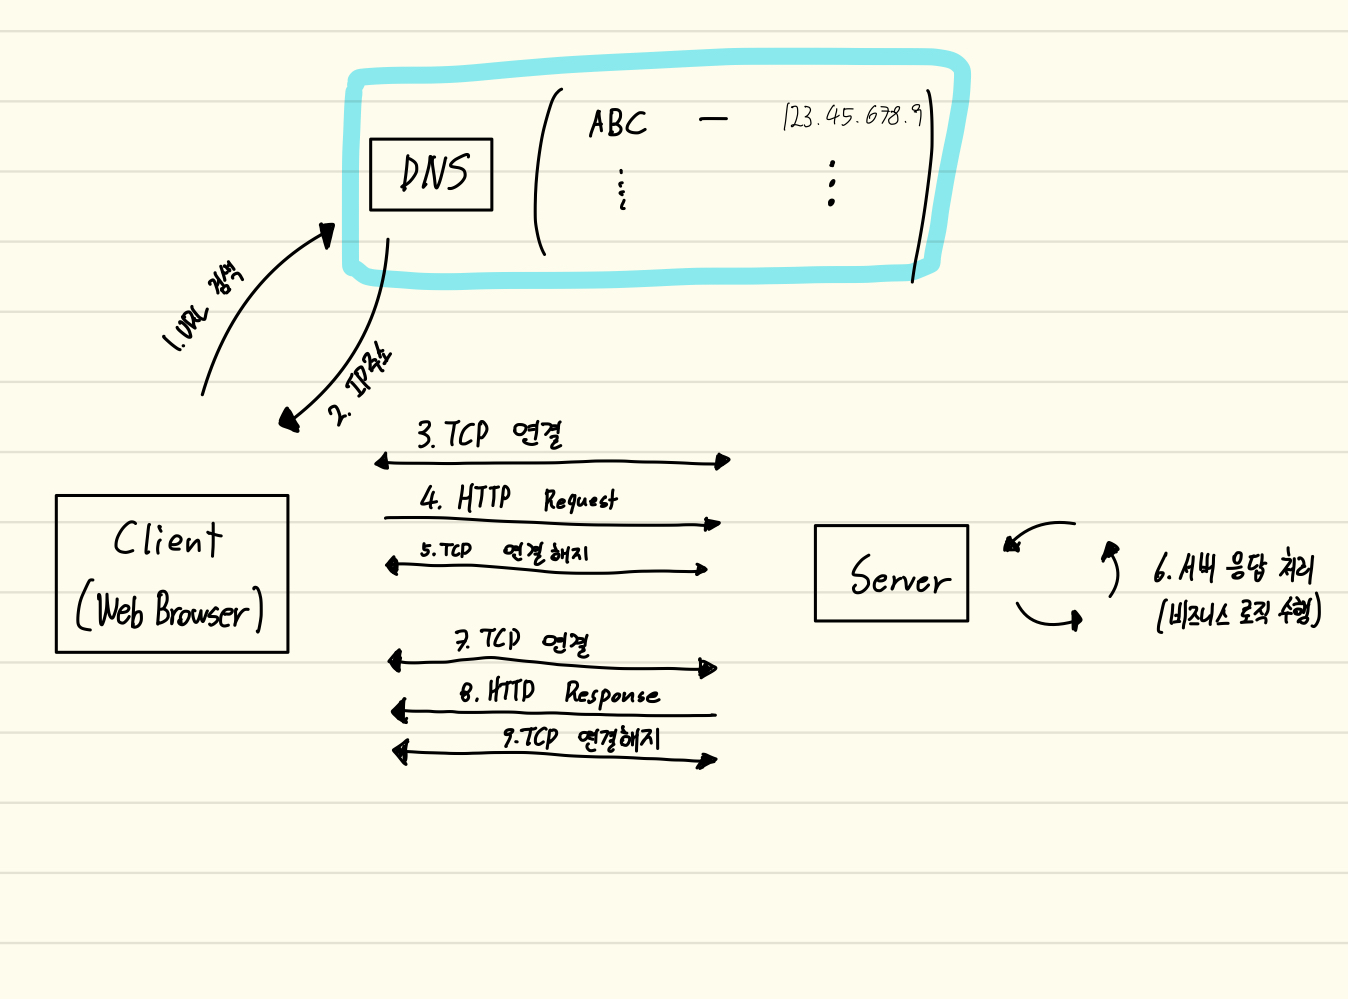 ABC - 123.45.678.9
DNS
1. URL 검색
2. IP주소
3. TCP 연결
4. HTTP Request
5. TCP 연결해지
Client
(Web Browser)
Server
6. 서버 응답 처리
(비즈니스 로직 수행)
7. TCP 연결
8. HTTP Response
9. TCP 연결해지